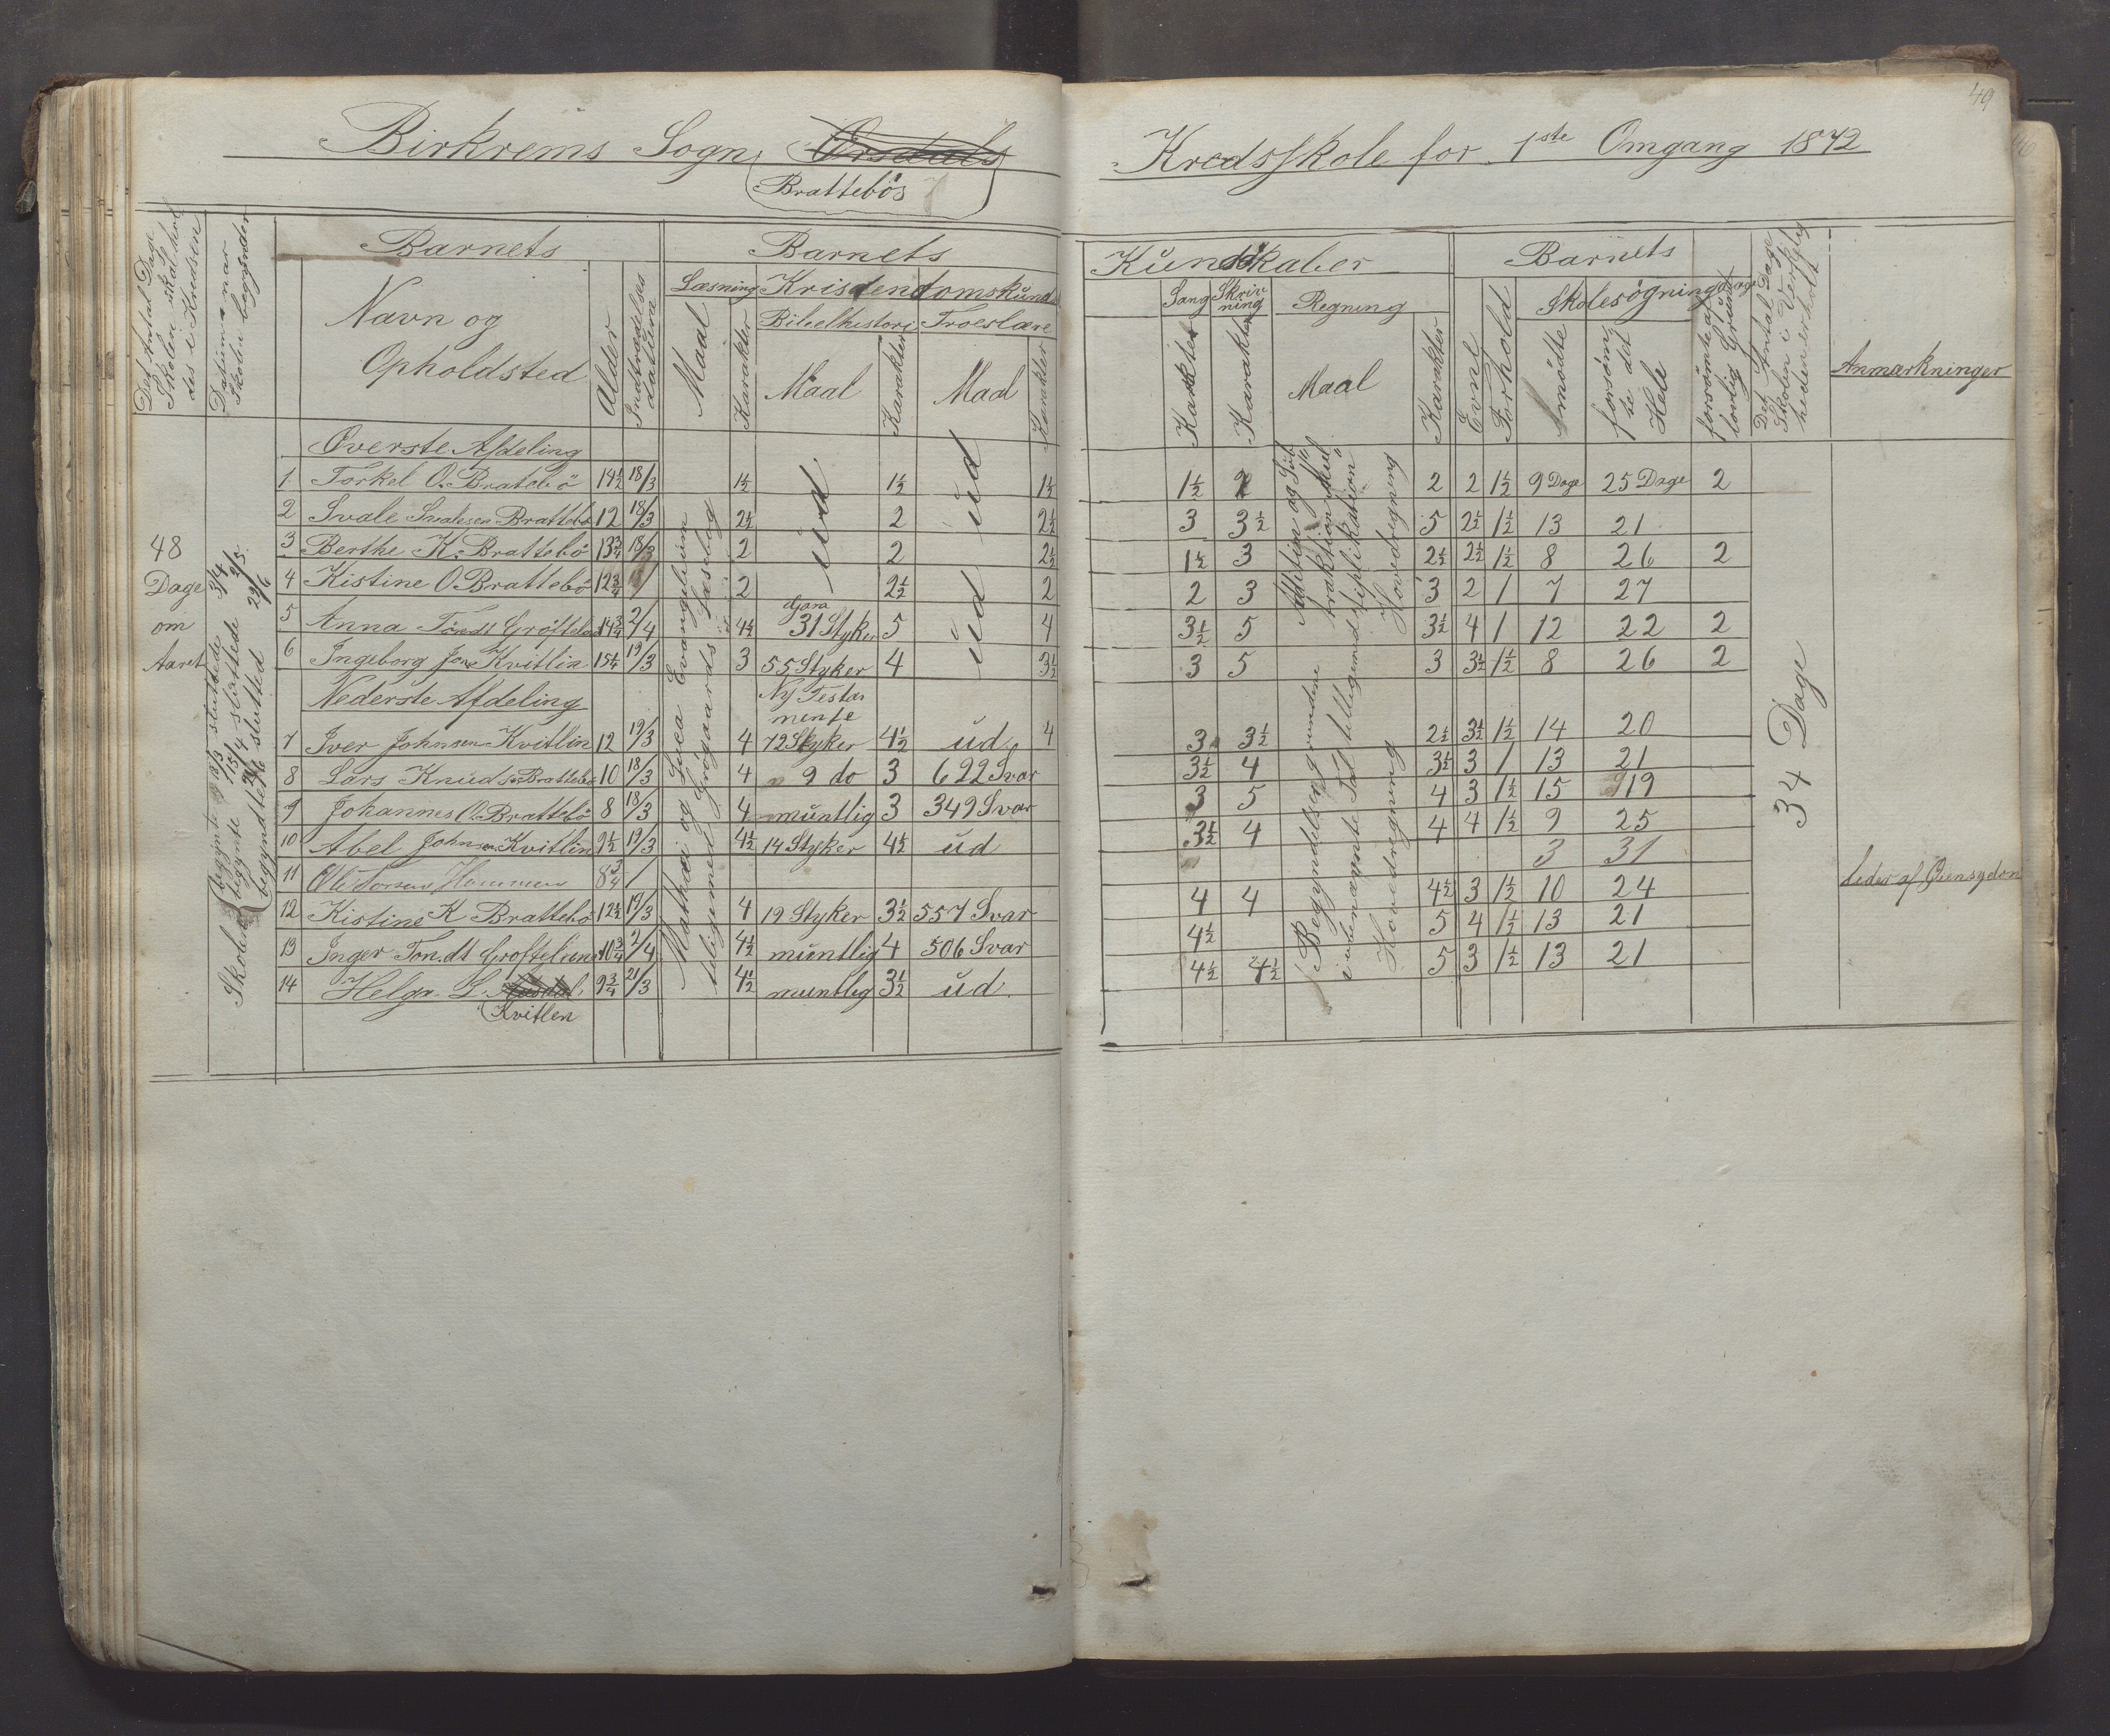 49
Birkrems Sogn Ørsdals Kredsskole for 1ste Omgang 1872
Brattebös
Det Antal Dage Skolen skal holdes i Kredsen
Datum naar Skolen begynder
Barnets
Navn og Opholdsted
Alder
Indtrædelses Datum
Barnets Kundskaber
Læsning
Maal
Karakter
Krisdendomskunds
Bibelhistori
Maal
Karakter
Troeslære
Maal
Karakter
Sang
Karakter
Skrivning
Karakter
Regning
Maal
Karakter
Barnets
Evne
Forhold
Skolesögning Dage
mödte
forsömte det Hele
forsömte af lovlig Grund
Det Antal Dage Skolen i Verkeligheden er holdt
Anmærkninger
48 Dage om Aaret
Skolen begynte 18/3 sluttede 3/4
begynte 15/4 sluttede 2/5
begyndte slutted 29/6
Mathæi og Luca Evangelium tilligemed Grögaards Læsebog
34 Dage
Överste Afdeling
1 Torkel O. Bratebö 14½ 18/3 1½ ud 1½ ud 1½ 1½ 2 2 2 1½ 9 Dage 25 Dage 2
2 Svale Svalesen Brattebö 12 18/3 2½ 2 2½ 3 3½ 5 2½ 1½ 13 21
3 Berthe K. Brattebö 13¾ 18/3 2 2 2½ 1½ 3 2½ 2½ 1½ 8 26 2
4 Kistine O. Brattebö 12¾ 2 2½ ud 2 2 3 3 2 1 7 27
5 Anna Töndt Gröfteland 14¾ 2/4 4½ 31 Styker 5 4 3½ 5 3½ 4 1 12 22 2
6 Ingeborg Jons Kvitlin 15¼ 19/3 3 55 Styker 4 3½ 3 5 3 3½ 1½ 8 26 2
Nederste Afdeling
Ny Testamente
7 Iver Johnsen Kvitlin 12 19/3 4 72 Styker 4½ ud 4 3 3½ 2½ 3½ 1½ 14 20
8 Lars Knudsen Brattebö 10 18/3 4 9 do 3 622 Svar 3½ 4 3½ 3 1 13 21
9 Johannes O. Brattebö 8 18/3 4 muntlig 3 349 Svar 3 5 4 3 1½ 15 19
10 Abel Johnsen Kvitlin 9½ 19/3 4½ 14 Styker 4½ ud 3½ 4 4 4 1½ 9 25
11 Ole Hammen 8¾ 3 31
12 Kistine K Brattebö 12½ 19/3 4 19 Styker 3½ 557 Svar 4 4 4½ 3 1½ 10 24
13 Inger Ton.dt Groftelund 10¾ 2/4 4½ muntlig 4 506 Svar 4½ 5 4 1½ 13 21
14 Helga L. 9¾ 21/3 4½ muntlig 3½ ud 4½ 4½ 5 3 1½ 13 21
Kvitlen
Hovedregning
Begyndelsesgrundene i ubenævnte Tal tilligemed Hovedregning